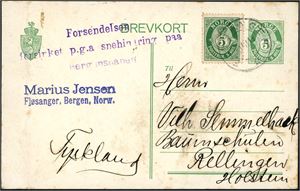 BREVKORT
Forsendelsen
forsinket p.g.a snehindring paa
Bergensbanen
NORGE
5
5
Marius Jensen
Fjøsanger, Bergen, Norw.
Tyskland
Herrn
Wilh. Semmelhack
Baumschulen
Rellingen
Holstein